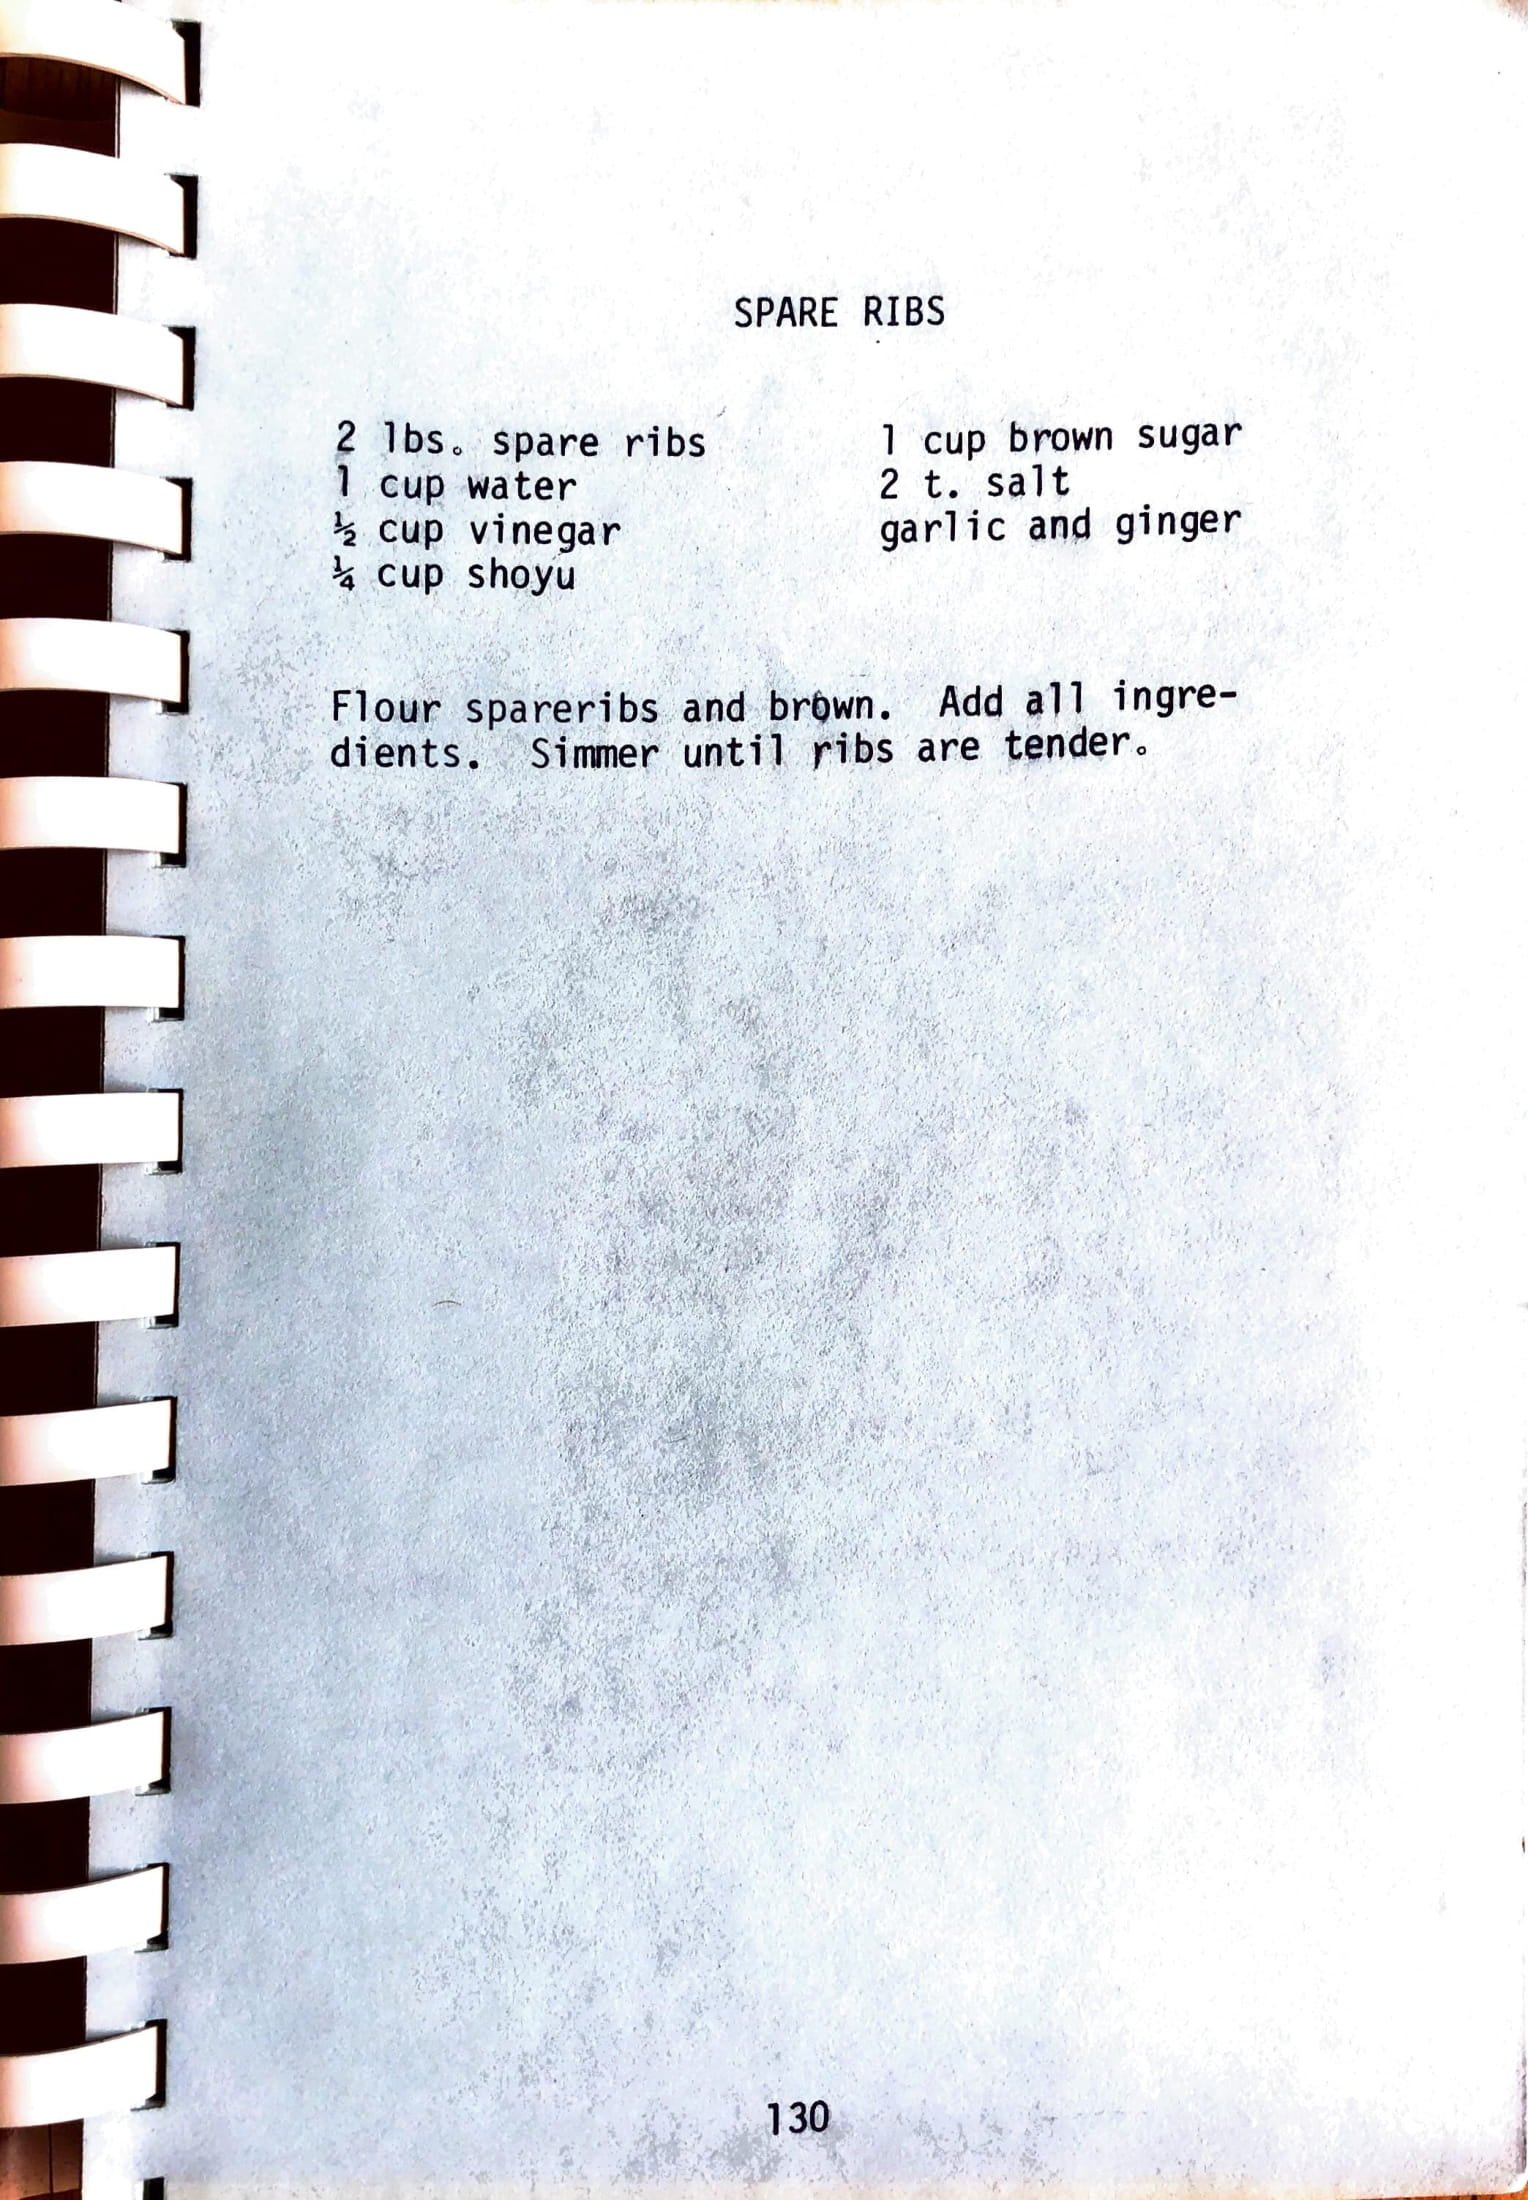 SPARE RIBS
2 lbs. spare ribs
1 cup water
½ cup vinegar
¼ cup shoyu
1 cup brown sugar
2 t. salt
garlic and ginger
Flour spareribs and brown. Add all ingre-
dients. Simmer until ribs are tender.
130